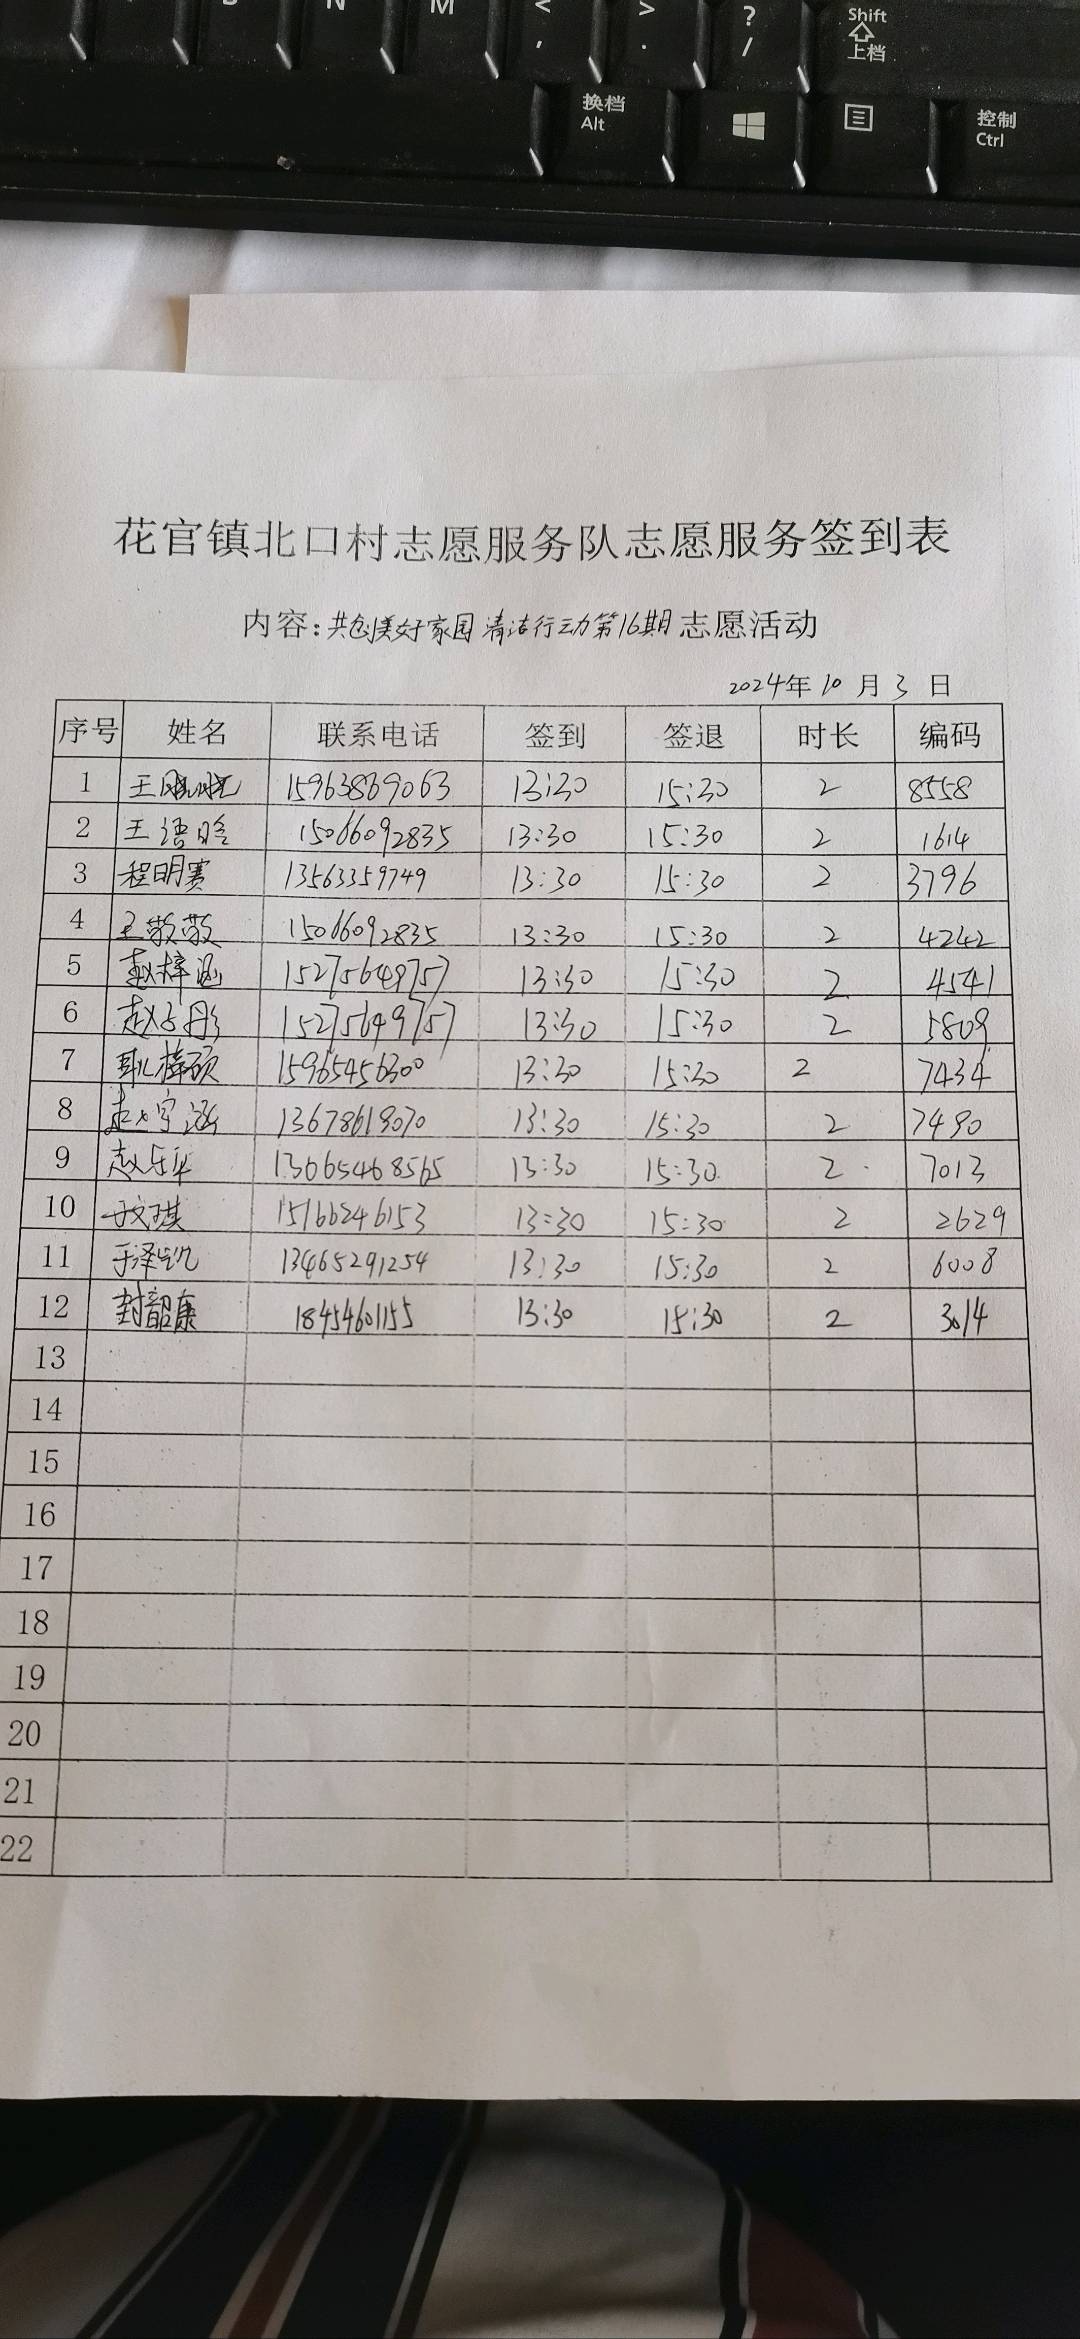 N M < >
, . ? /
Shift
上档
换档
Alt
控制
Ctrl
花官镇北口村志愿服务队志愿服务签到表
内容:共创美好家园清洁行动第16期志愿活动
2024年10月3日
序号 姓名 联系电话 签到 签退 时长 编码
1 王 15963869063 13:30 15:30 2 8558
2 王语晗 15066092835 13:30 15:30 2 1614
3 程明赛 13563359749 13:30 15:30 2 3796
4 王敬敬 15066092835 13:30 15:30 2 4242
5 赵梓涵 15275649757 13:30 15:30 2 4541
6 赵子彤 15275649757 13:30 15:30 2 5809
7 梓硕 15965456300 13:30 15:30 2 7434
8 赵宇涵 13678619070 13:30 15:30 2 7490
9 赵乐华 13665468565 13:30 15:30 2 7013
10 琪 15166246153 13:30 15:30 2 2629
11 于泽凯 13465291254 13:30 15:30 2 6008
12 封韶康 18454601155 13:30 15:30 2 3014
13
14
15
16
17
18
19
20
21
22